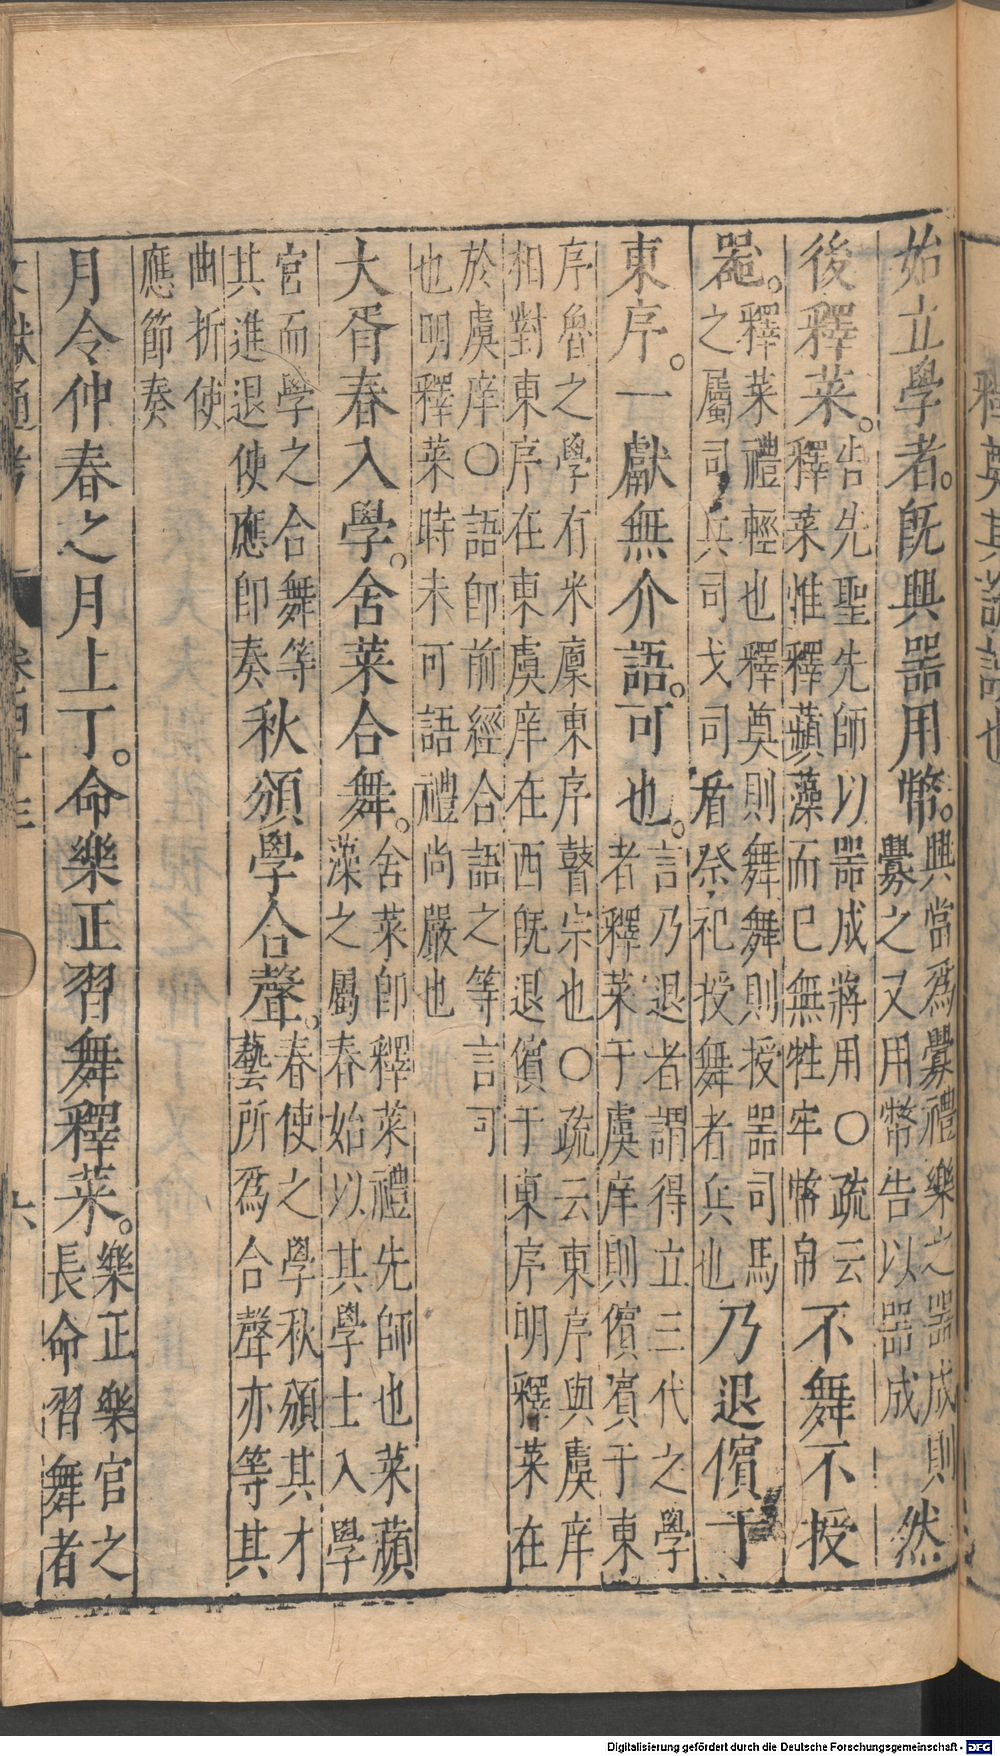 始立學者。旣興器用幣。興當爲釁禮樂之器成則
釁之又用幣告以器成
然
後釋菜。告先聖先師以器成將用○疏云
釋菜惟釋蘋藻而已無牲牢幣帛
不舞不授
器。釋菜禮輕也釋奠則舞舞則授器司馬
之屬司兵司戈司盾祭祀授舞者兵也
乃退儐于
東序。一獻無介語。可也。言乃退者謂得立三代之學
者釋菜于虞庠則儐賓于東
序魯之學有米廩東序瞽宗也○疏云東序與虞庠
相對東序在東虞庠在西旣退儐于東序明釋菜在
於虞庠○語卽前經合語之等言可
也明釋菜時未可語禮尚嚴也
大胥春入學。舍菜合舞。舍菜卽釋菜禮先師也菜蘋
藻之屬春始以其學士入學
宮而學之合舞等
其進退使應卽奏
秋頒學合聲。春使之學秋頒其才
藝所爲合聲亦等其
曲折使
應節奏
月令仲春之月上丁。命樂正習舞釋菜。樂正樂官之
長命習舞者
文獻通考
六
Digitalisierung gefördert durch die Deutsche Forschungsgemeinschaft - DFG